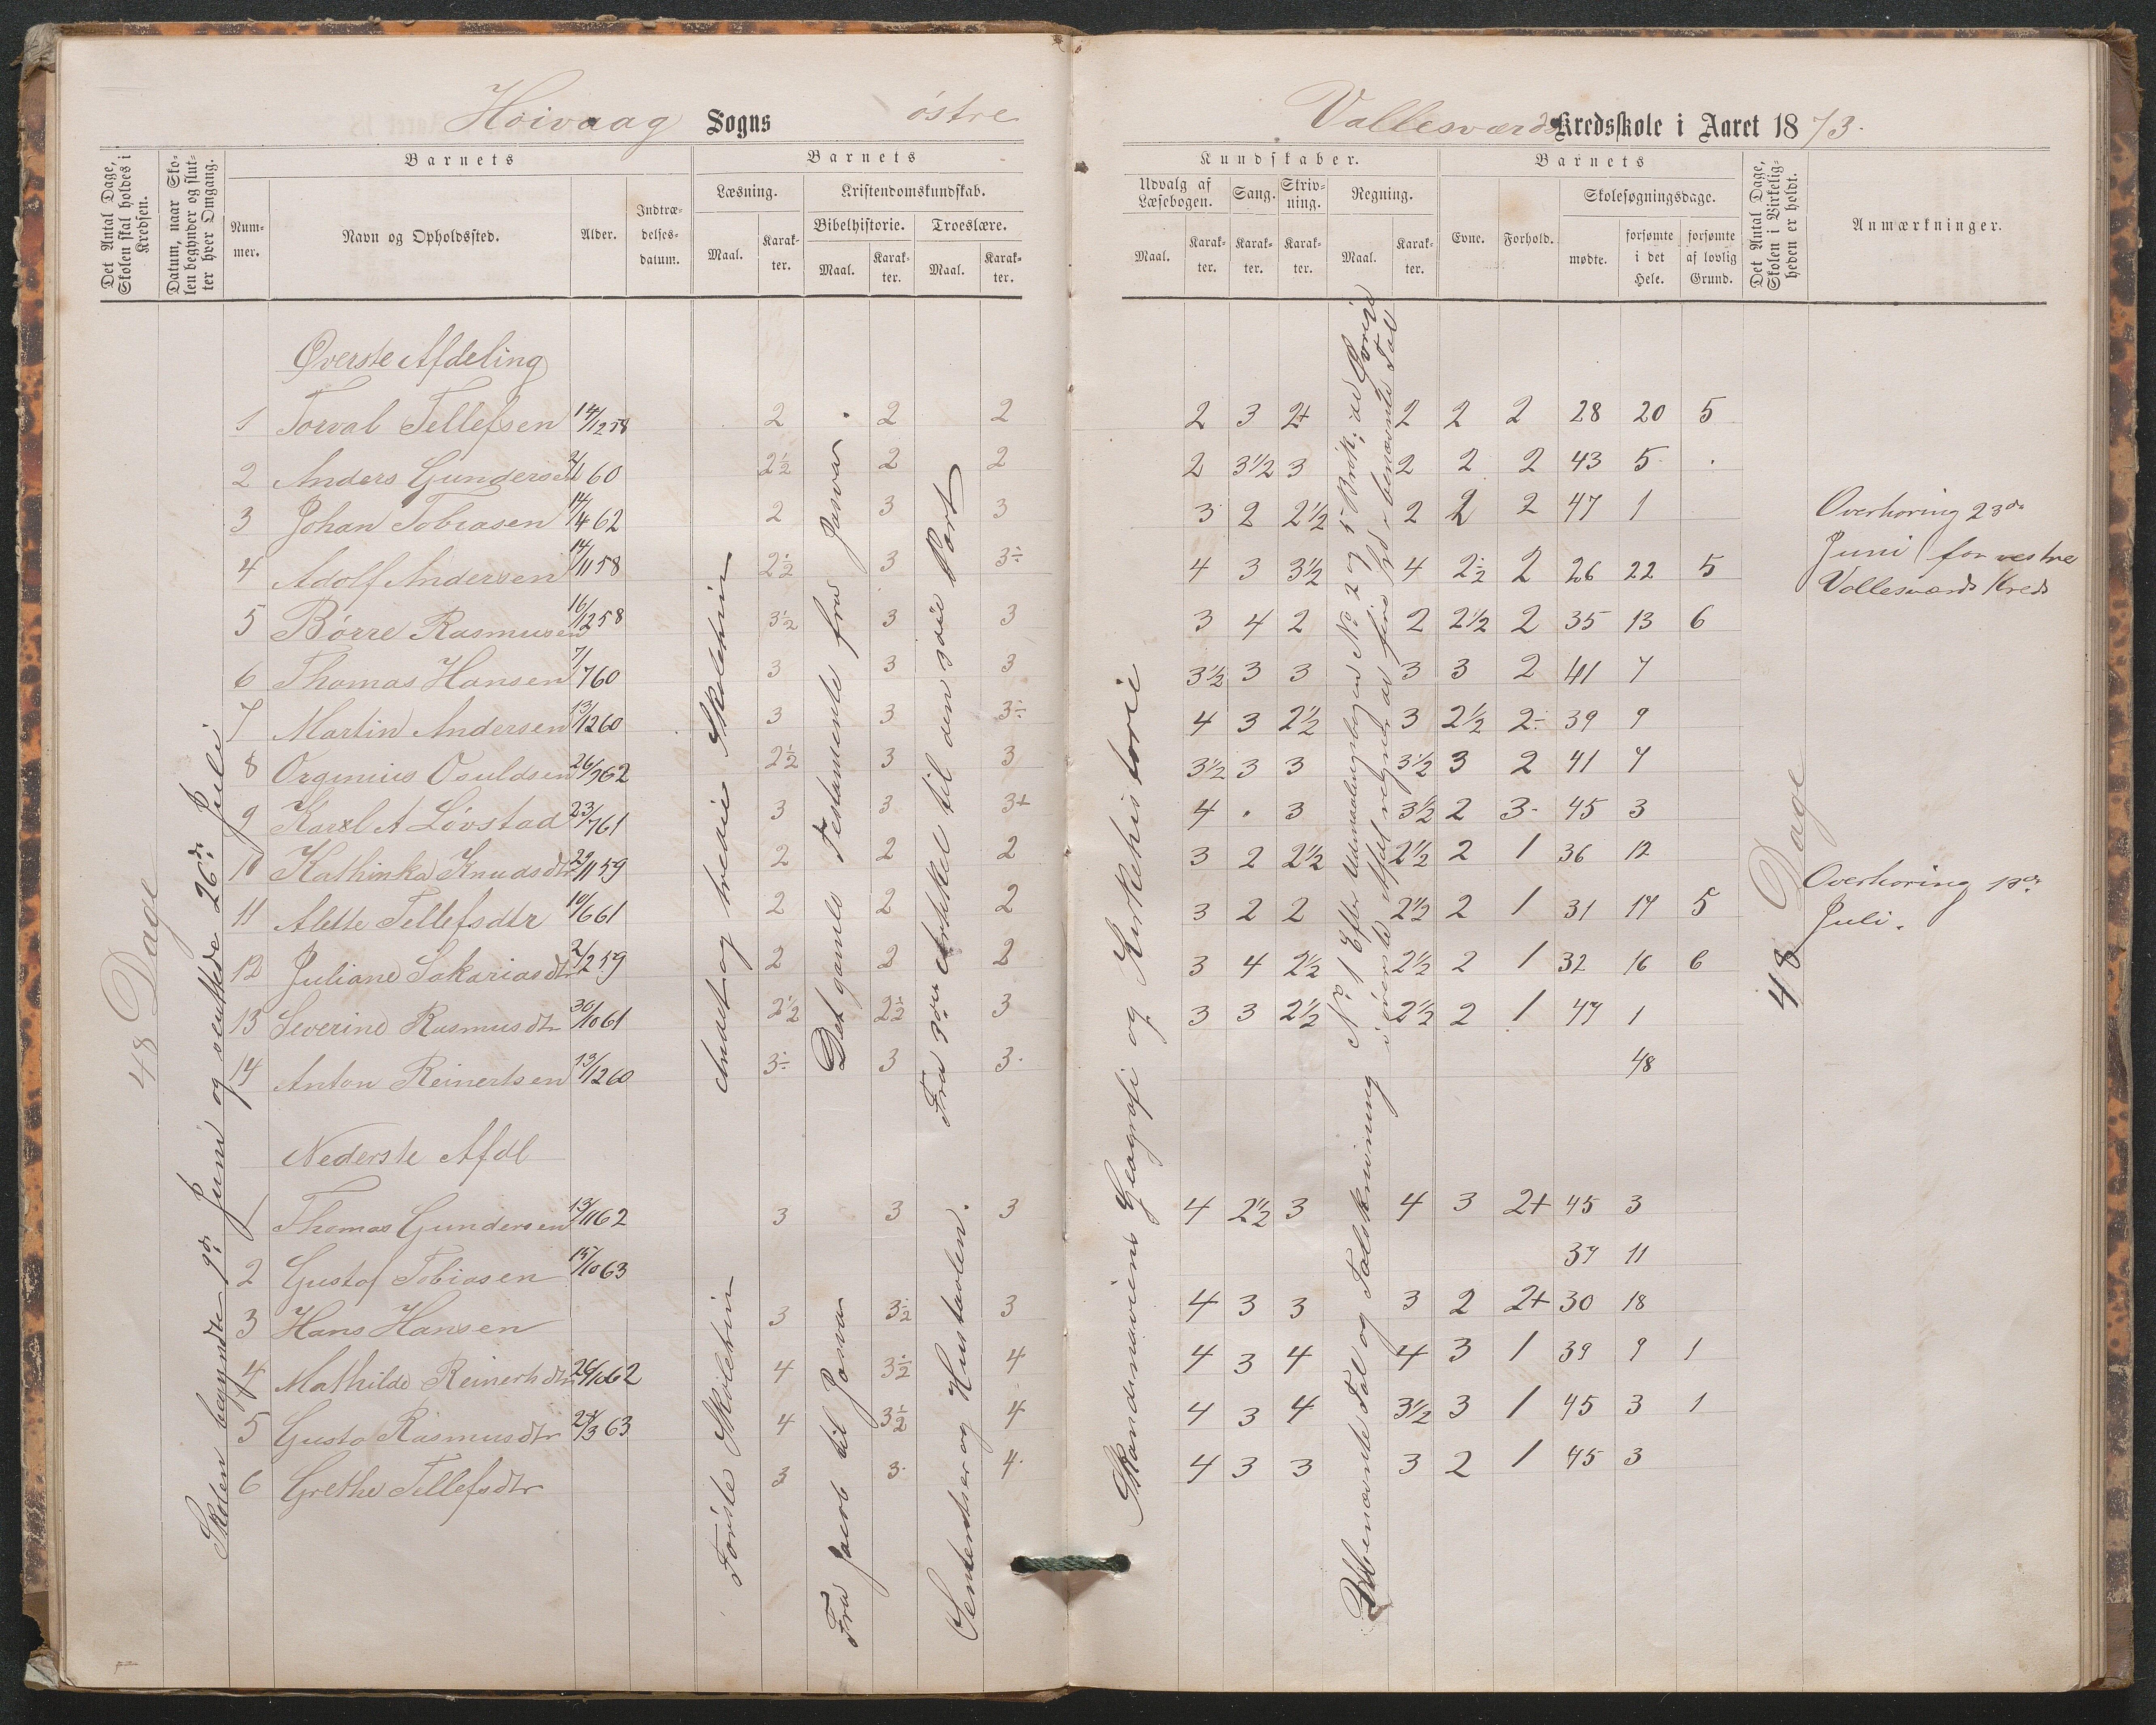 Høivaag Sogns østre Vallesværds Kredsskole i Aaret 1873.
Det Antal Dage, Skolen skal holdes i Kredsen.
Datum, naar Skolen begynder og slutter hver Omgang.
Barnets
Nummer.
Navn og Opholdssted.
Alder.
Indtrædelsesdatum.
Barnets
Læsning.
Maal.
Karakter.
Kristendomskundskab.
Bibelhistorie.
Maal.
Karakter.
Troeslære.
Maal.
Karakter.
Kundskaber.
Udvalg af Læsebogen.
Maal.
Karakter.
Sang.
Karakter.
Skrivning.
Karakter.
Regning.
Maal.
Karakter.
Barnets
Evne.
Forhold.
Skolesøgningsdage.
mødte.
forsømte i det Hele.
forsømte af lovlig Grund.
Det Antal Dage, Skolen i Virkeligheden er holdt.
Anmærkninger.
48 Dage
Skolen begyndte 9de Juni og sluttede 26de Juli
Øverste Afdeling
1 Torval Tellefsen 14/12 58 2 2 2 2 3 2+ 2 2 2 28 20 5
2 Anders Gundersen 60 2½ 2 2 2 3½ 3 2 2 2 43 5
3 Johan Tobiasen 14/4 62 2 3 3 3 2 2½ 2 2 2 47 1
4 Adolf Andersen 14/11 58 2½ 3 3÷ 4 3 3½ 4 2½ 2 26 22 5
5 Børre Rasmusen 16/12 58 3½ 3 3 3 4 2 2 2½ 2 35 13 6
6 Thomas Hansen 7/7 60 3 3 3 3½ 3 3 3 3 2 41 7
7 Martin Andersen 13/12 60 3 3 3÷ 4 3 2½ 3 2½ 2÷ 39 9
8 Orginius Osuldsen 26/9 62 2½ 3 3 3½ 3 3 3½ 3 2 41 7
9 Karl A Løvstad 23/7 61 3 3 3+ 4 . 3 3½ 2 3 45 3
10 Kathinka Knudsdtr 29/11 59 2 2 2 3 2 2½ 2½ 2 1 36 12
11 Alette Tellefsdtr 10/6 61 2 2 2 3 2 2 2½ 2 1 31 17 5
12 Juliane Sakariasdtr 2/2 59 2 2 2 3 4 2½ 2½ 2 1 32 16 6
13 Severine Rasmusdtr 30/10 61 2½ 2½ 3 3 3 2½ 2½ 2 1 47 1
14 Anton Reinertsen 13/12 60 3÷ 3 3 48
Andet og tredie Skoletrin
Det gamle Testamente fra Josva
Fra 3die Artikkel til den 3die Part
Nederste Afdl
1 Thomas Gundersen 13/11 62 3 3 3 4 2½ 3 4 3 2+ 45 3
2 Gustaf Tobiasen 15/10 63 37 11
3 Hans Hansen 3 3½ 3 4 3 3 3 2 2+ 30 18
4 Mathilde Reinertsdtr 26/10 62 4 3½ 4 4 3 4 4 3 1 39 9 1
5 Gusta Rasmusdtr 24/3 63 4 3½ 4 4 3 4 3½ 3 1 45 3 1
6 Grethe Tellefsdtr 3 3 4 4 3 3 3 2 1 45 3
Første Skoletrin
Fra Jacob til Josva
og Hustavlen.
Skandinaviens Geografi og Kirkehistorie
Ubenævnte Tal og Talskrivning
48 Dage
Overhøring 23de
Juni for vestre
Vallesværds Kreds
Overhøring 18de
Juli.